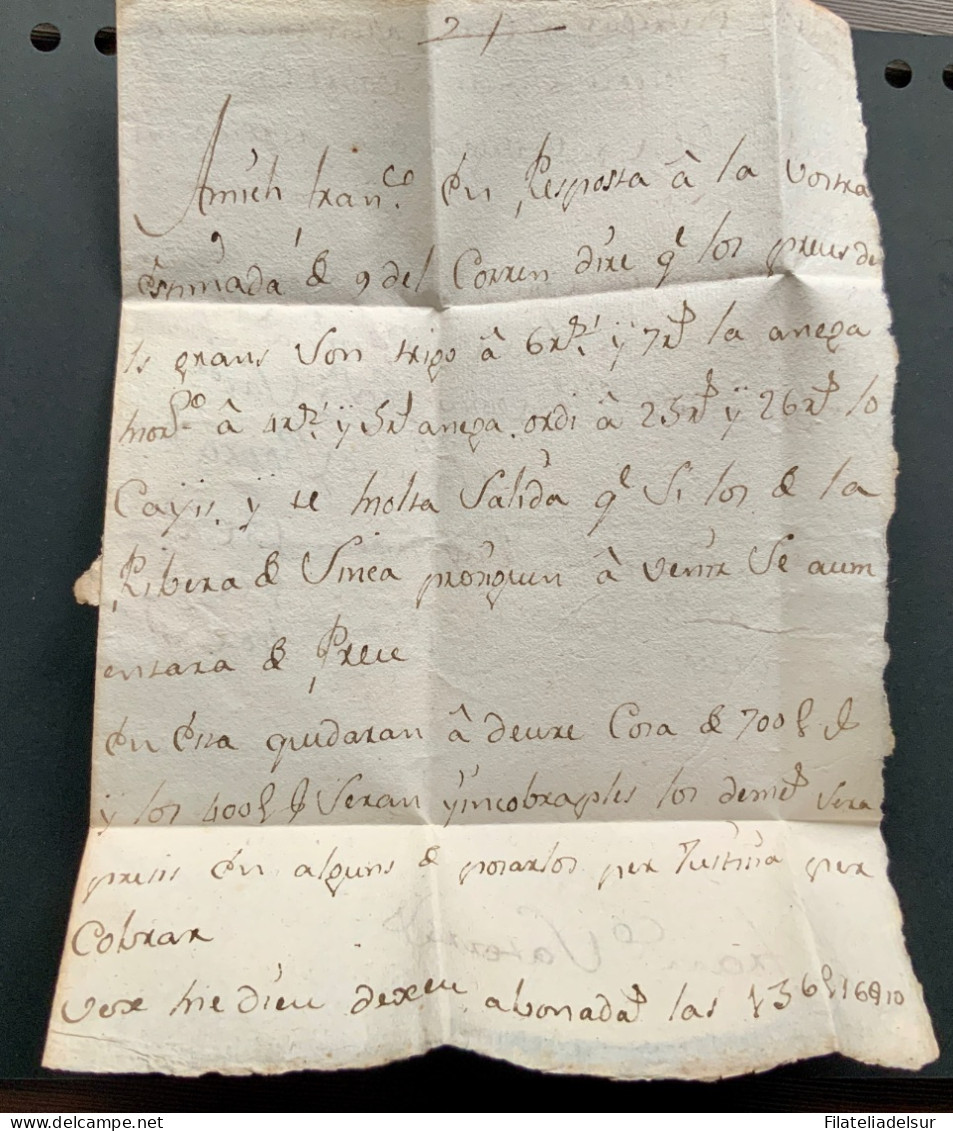 Amich Fran.co en Resposta â la vostra
estimada de 9 del Corren dire q.e los preus de
ls grans son trigo â 6 y 7 la anega
â 4 y 5 anega. ordi â 25 y 26 lo
Cayis, y te molta Salida q.e Si los de la
Ribera de Sinca prosiguen â venir Se aum
entara de Preu
en esta quedaran â deure Cosa de 700 ll
y los 400 ll Seran yncobraples los demes sera
presis en alguns de posarlos per Justicia per
Cobrar
vos me dieu dexeu abonadas las 16
Filateliadelsur.com